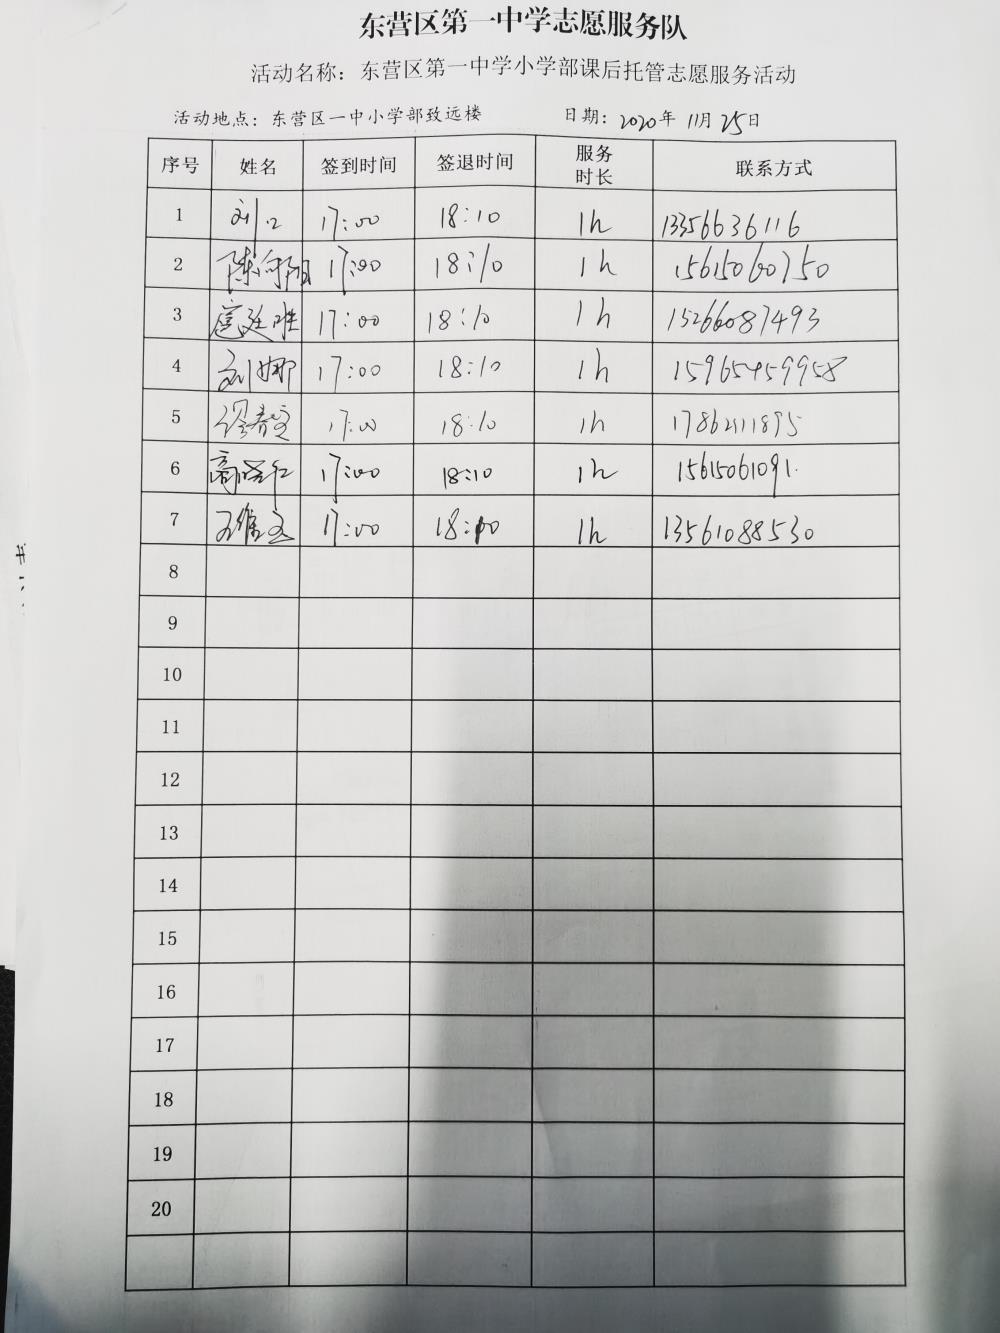 东营区第一中学志愿服务队
活动名称：东营区第一中学小学部课后托管志愿服务活动
活动地点：东营区一中小学部致远楼 日期：2020年 11月 25日
序号 姓名 签到时间 签退时间 服务时长 联系方式
1 刘 17:00 18:10 1h 13356636116
2 陈向阳 17:00 18:10 1h 15615060750
3 扈廷胜 17:00 18:10 1h 15266087493
4 刘娜 17:00 18:10 1h 15965459958
5 17:00 18:10 1h 17862111895
6 17:00 18:10 1h 15615061091
7 17:00 18:10 1h 13561088530
8
9
10
11
12
13
14
15
16
17
18
19
20